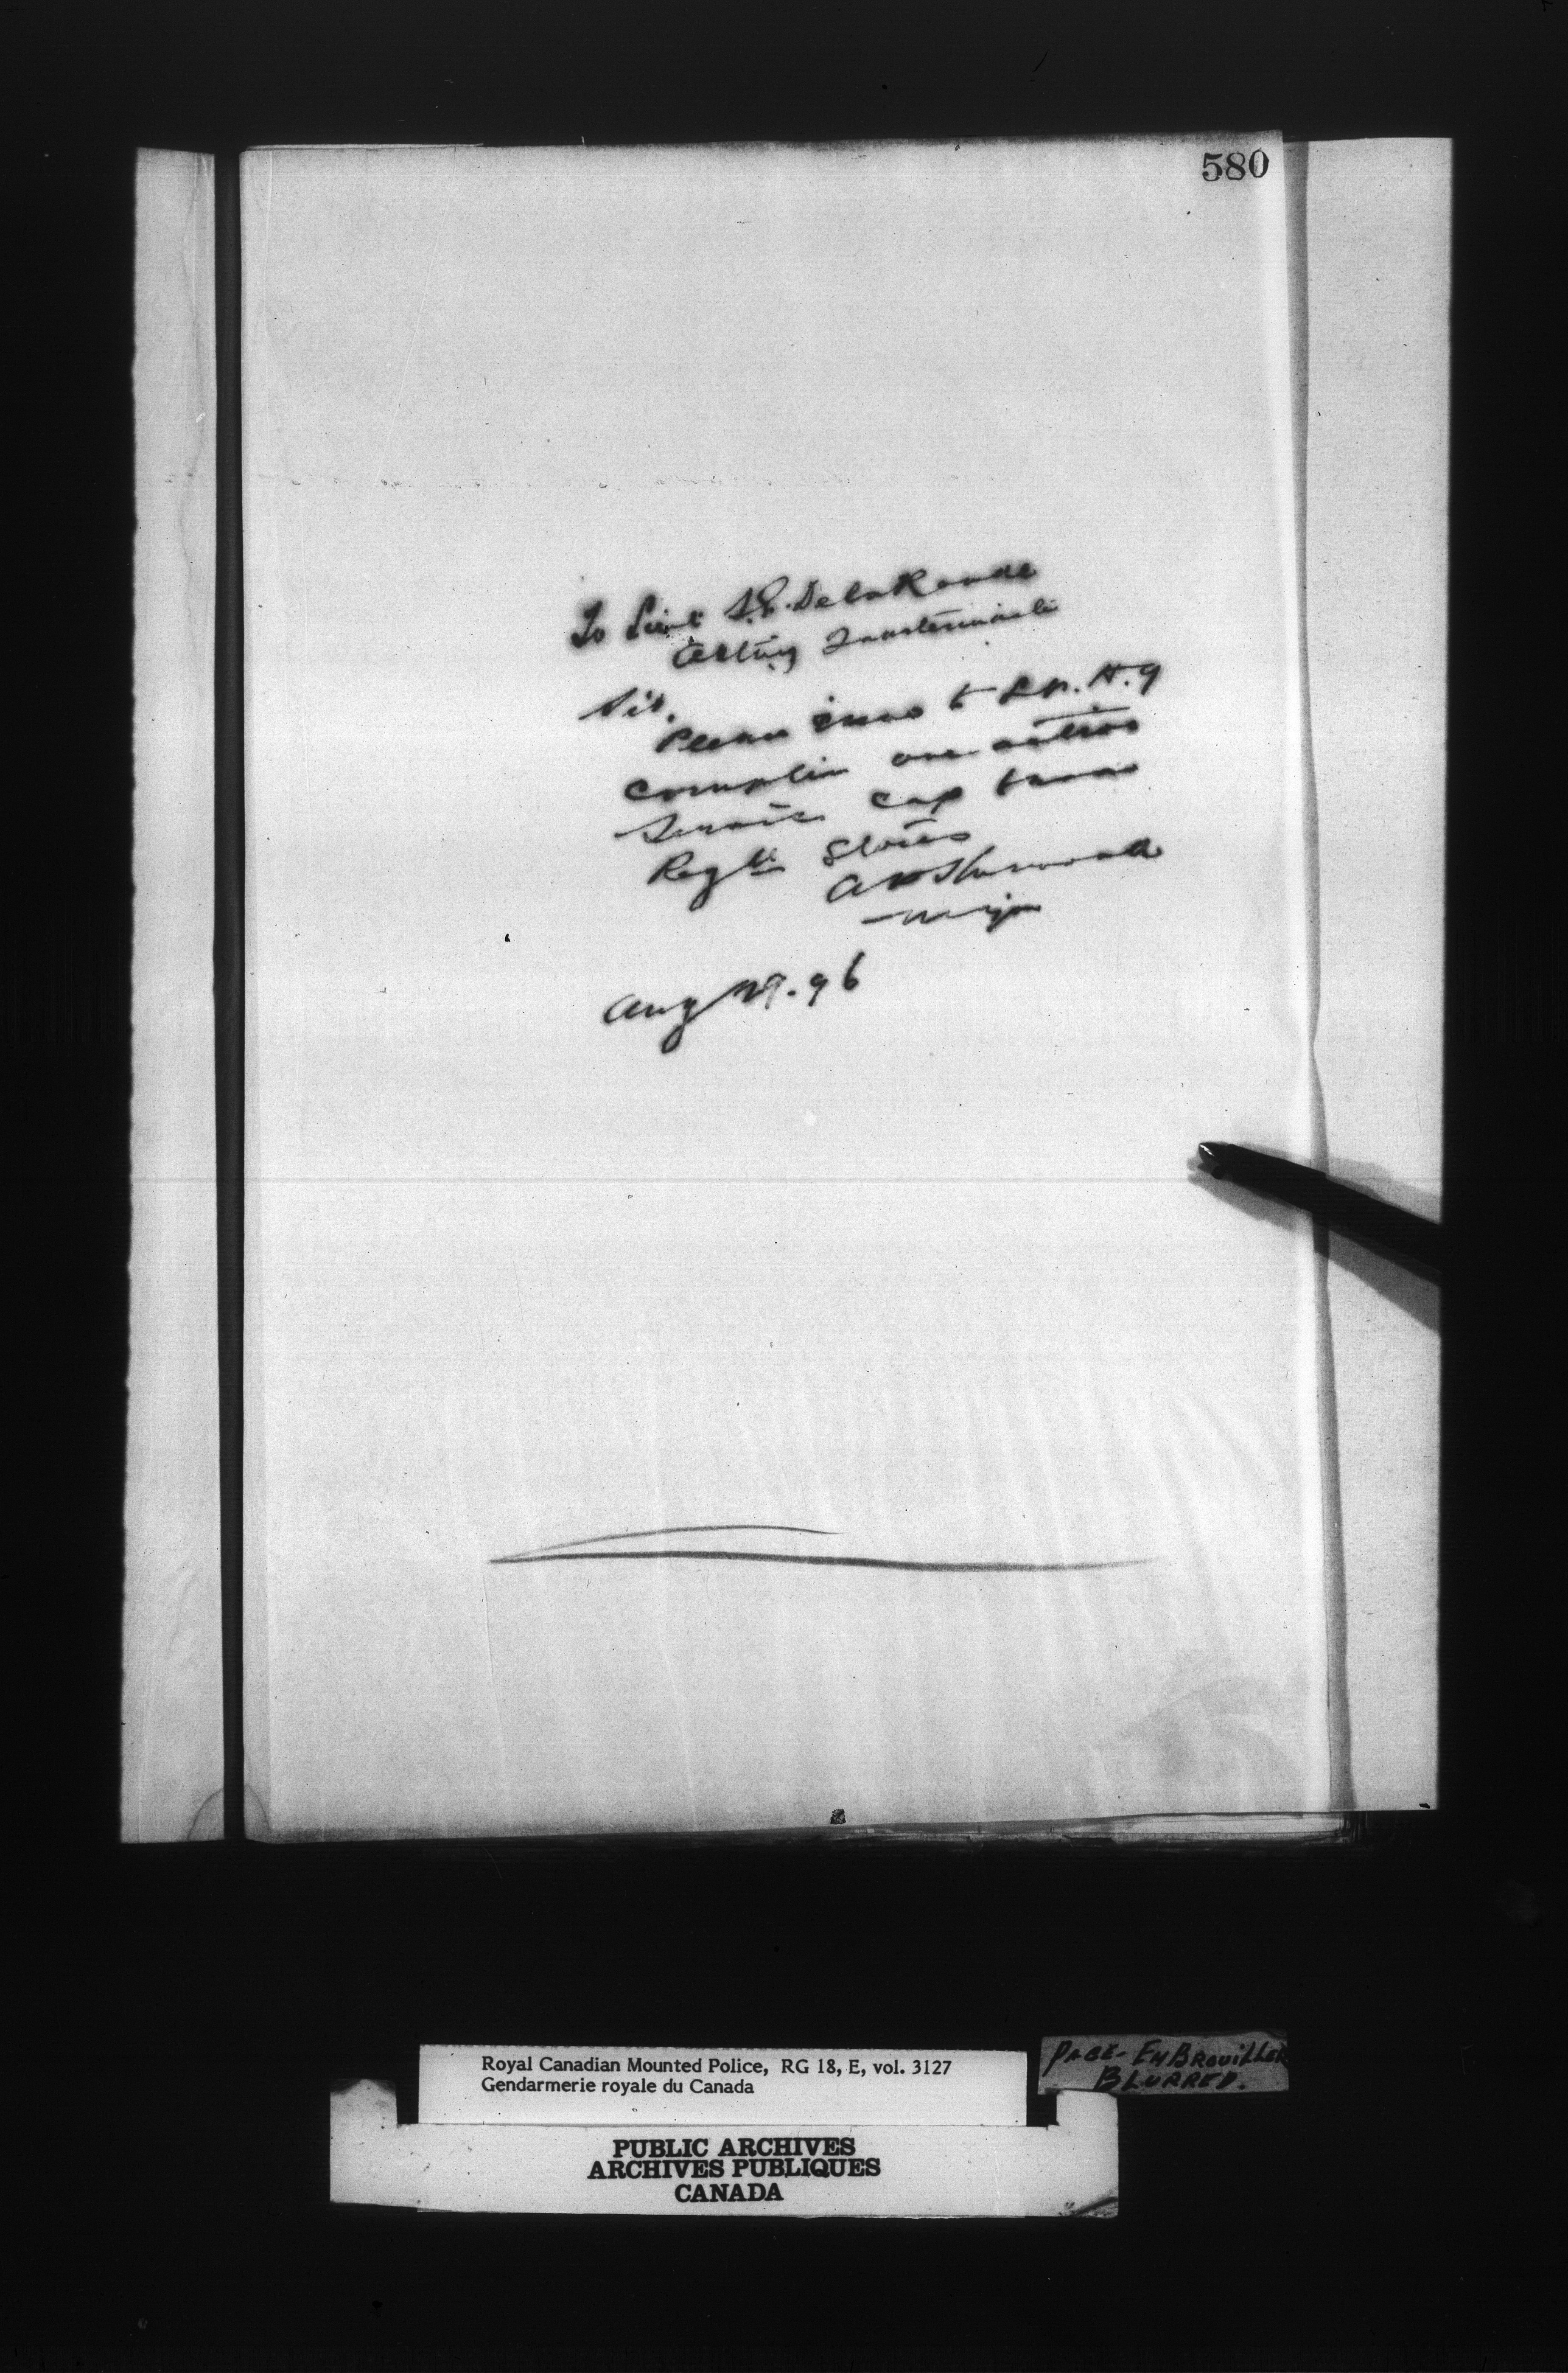 580
To Lieut S.E. DelaRonde
Acting Quartermaster
Sir,
Please issue to Co. No. 9
Company one active
Service cap from
Regtl Stores
A P Sherwood
Major
Aug 29. 96
Royal Canadian Mounted Police, RG 18, E, vol. 3127
Gendarmerie royale du Canada
PAGE- EMBROUILLER
BLURRED.
PUBLIC ARCHIVES
ARCHIVES PUBLIQUES
CANADA